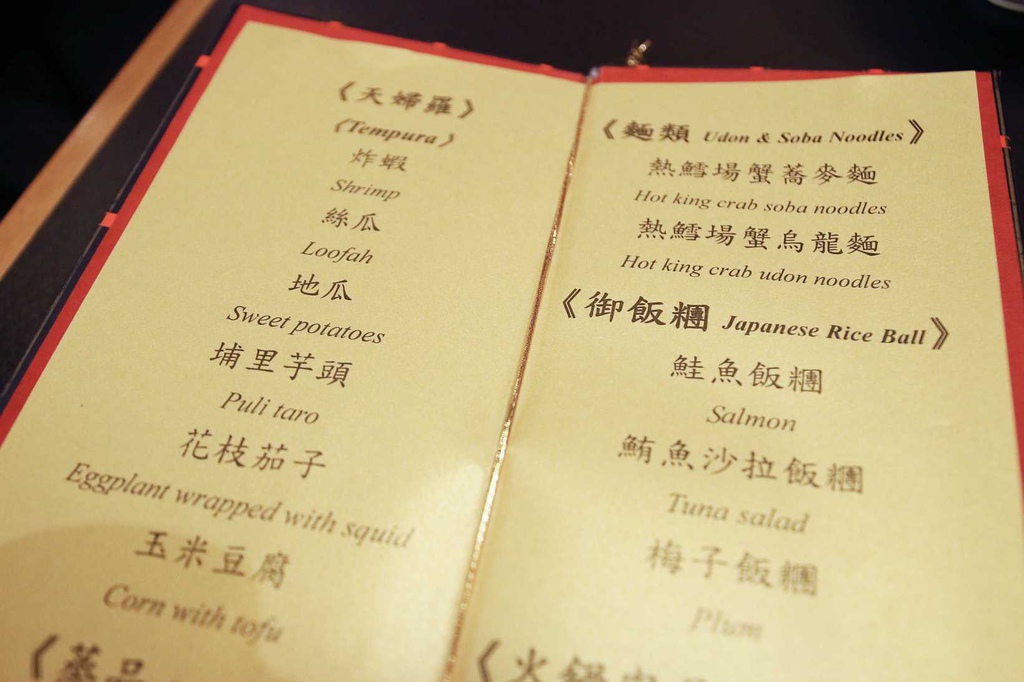 《天婦羅》
《Tempura》
炸蝦
Shrimp
絲瓜
Loofah
地瓜
Sweet potatoes
埔里芋頭
Puli taro
花枝茄子
Eggplant wrapped with squid
玉米豆腐
Corn with tofu
《蒸品
《麵類 Udon & Soba Noodles》
熱鱈場蟹蕎麥麵
Hot king crab soba noodles
熱鱈場蟹烏龍麵
Hot king crab udon noodles
《御飯糰 Japanese Rice Ball》
鮭魚飯糰
Salmon
鮪魚沙拉飯糰
Tuna salad
梅子飯糰
Plum
《火鍋